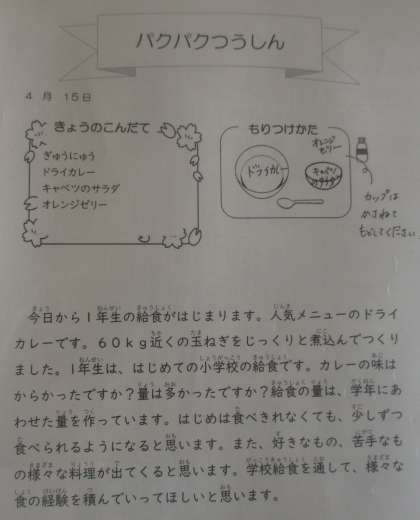 パクパクつうしん
4 月 15日
きょうのこんだて
ぎゅうにゅう
ドライカレー
キャベツのサラダ
オレンジゼリー
もりつけかた
オレンジ
ゼリー
ドライカレー
キャベツ
サラダ
カップは
かさねて
もどしてください
今日から1年生の給食がはじまります。人気メニューのドライ
カレーです。60kg近くの玉ねぎをじっくりと煮込んでつくり
ました。1年生は、はじめての小学校の給食です。カレーの味は
からかったですか？量は多かったですか？給食の量は、学年にあ
わせた量を作っています。はじめは食べきれなくても、少しずつ
食べられるようになると思います。また、好きなもの、苦手なも
の様々な料理が出てくると思います。学校給食を通して、様々な
食の経験を積んでいってほしいと思います。